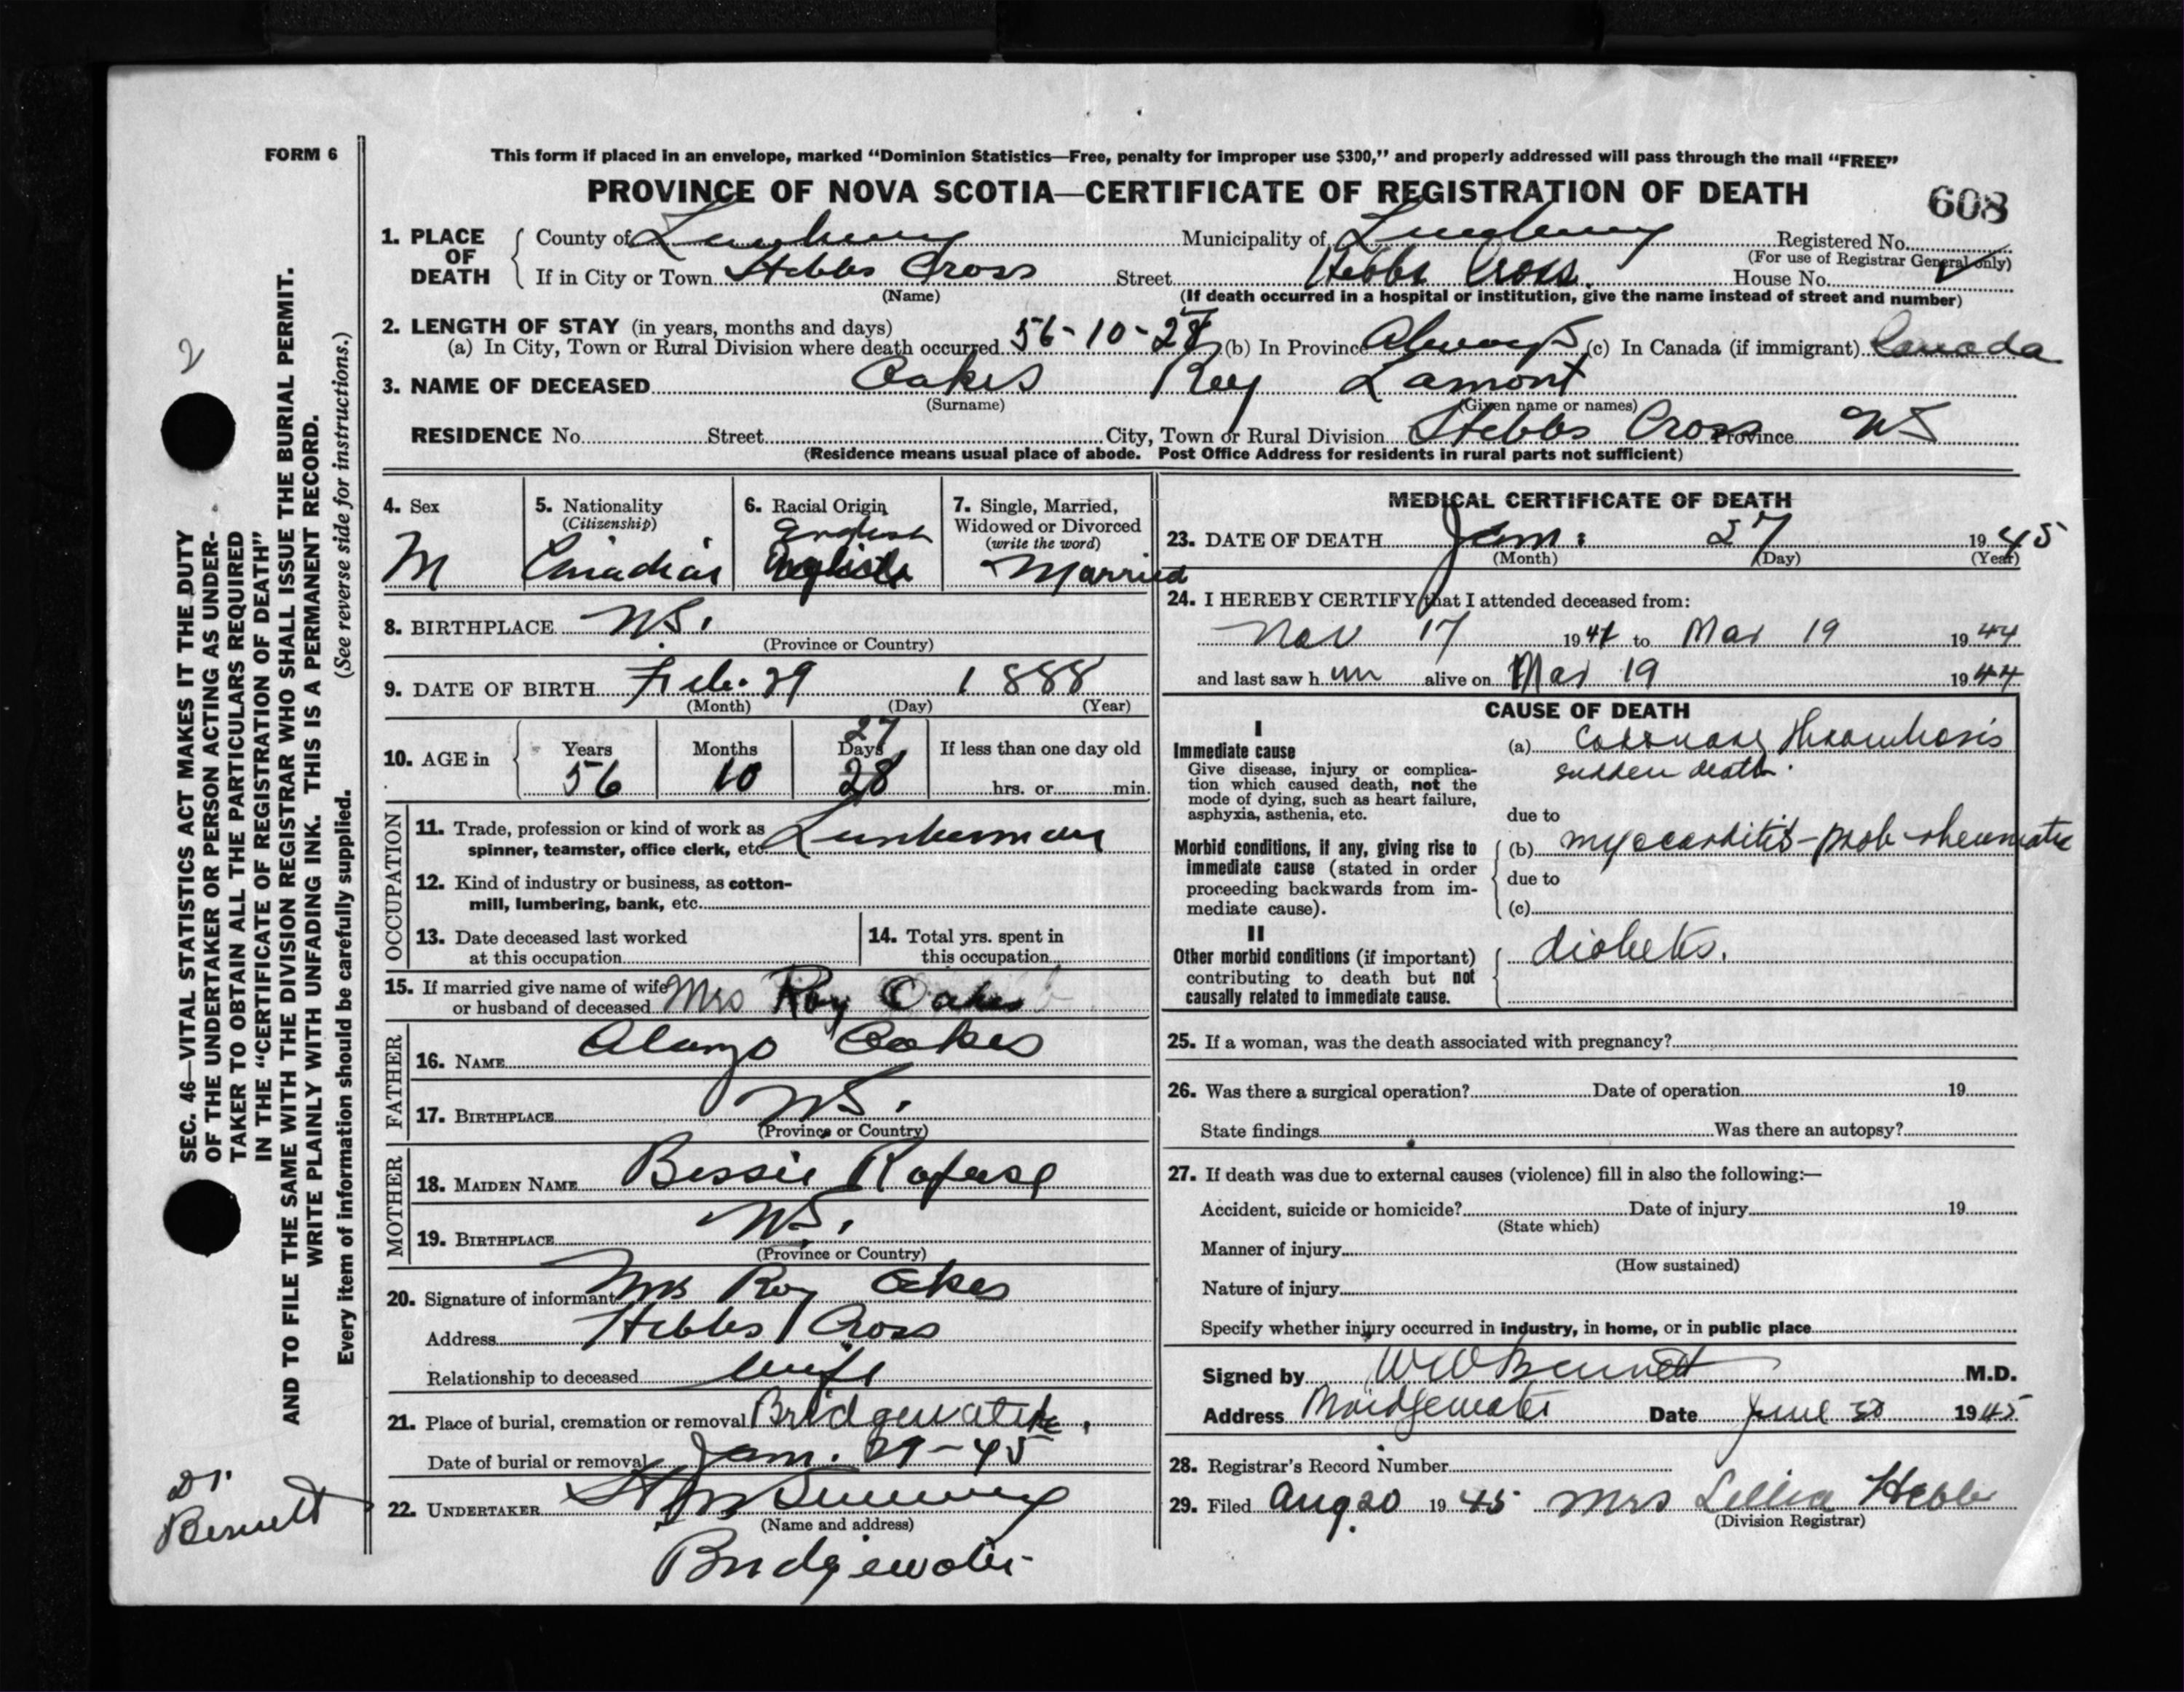 FORM 6
This form if placed in an envelope, marked "Dominion Statistics—Free, penalty for improper use $300," and properly addressed will pass through the mail "FREE"
PROVINCE OF NOVA SCOTIA—CERTIFICATE OF REGISTRATION OF DEATH
608
1. PLACE OF DEATH
County of Lunenburg Municipality of Lunenburg Registered No.
(For use of Registrar General only)
If in City or Town Hebbs Cross Street Hebbs Cross. House No.
(Name)
(If death occurred in a hospital or institution, give the name instead of street and number)
2. LENGTH OF STAY (in years, months and days)
(a) In City, Town or Rural Division where death occurred 56-10-27 (b) In Province Always (c) In Canada (if immigrant) Canada
3. NAME OF DECEASED Oakes Roy Lamont
(Surname) (Given name or names)
RESIDENCE No. Street City, Town or Rural Division Hebbs Cross Province NS
(Residence means usual place of abode. Post Office Address for residents in rural parts not sufficient)
4. Sex
M
5. Nationality
(Citizenship)
Canadian
6. Racial Origin
English
7. Single, Married,
Widowed or Divorced
(write the word)
Married
8. BIRTHPLACE N.S.
(Province or Country)
9. DATE OF BIRTH Feb. 29 1888
(Month) (Day) (Year)
10. AGE in
Years 56
Months 10
27
Days 28
If less than one day old
hrs. or min.
OCCUPATION
11. Trade, profession or kind of work as
spinner, teamster, office clerk, etc. Lumberman
12. Kind of industry or business, as cotton-
mill, lumbering, bank, etc.
13. Date deceased last worked
at this occupation
14. Total yrs. spent in
this occupation
15. If married give name of wife
or husband of deceased Mrs Roy Oakes
FATHER
16. NAME Alonzo Oakes
17. BIRTHPLACE N.S.
(Province or Country)
MOTHER
18. MAIDEN NAME Bessie Rafuse
19. BIRTHPLACE N.S.
(Province or Country)
20. Signature of informant Mrs Roy Oakes
Address Hebbs Cross
Relationship to deceased wife
21. Place of burial, cremation or removal Bridgewater
Date of burial or removal Jan. 29-45
22. UNDERTAKER
(Name and address)
Bridgewater
MEDICAL CERTIFICATE OF DEATH
23. DATE OF DEATH Jan: 27 1945
(Month) (Day) (Year)
24. I HEREBY CERTIFY that I attended deceased from:
Nov 17 1941 to Mar 19 1944
and last saw h im alive on Mar 19 1944
CAUSE OF DEATH
I
Immediate cause
Give disease, injury or complica-
tion which caused death, not the
mode of dying, such as heart failure,
asphyxia, asthenia, etc.
(a) Coronary Thrombosis
sudden death.
due to
Morbid conditions, if any, giving rise to
immediate cause (stated in order
proceeding backwards from im-
mediate cause).
(b) myocarditis - prob rheumatic
due to
(c)
II
Other morbid conditions (if important)
contributing to death but not
causally related to immediate cause.
diabetes.
25. If a woman, was the death associated with pregnancy?
26. Was there a surgical operation? Date of operation 19
State findings Was there an autopsy?
27. If death was due to external causes (violence) fill in also the following:—
Accident, suicide or homicide? Date of injury 19
(State which)
Manner of injury
(How sustained)
Nature of injury
Specify whether injury occurred in industry, in home, or in public place
Signed by W W Bennett M.D.
Address Bridgewater Date June 30 1945
28. Registrar's Record Number
29. Filed Aug 20 1945 Mrs Lellia Hebb
(Division Registrar)
SEC. 46—VITAL STATISTICS ACT MAKES IT THE DUTY
OF THE UNDERTAKER OR PERSON ACTING AS UNDER-
TAKER TO OBTAIN ALL THE PARTICULARS REQUIRED
IN THE "CERTIFICATE OF REGISTRATION OF DEATH"
AND TO FILE THE SAME WITH THE DIVISION REGISTRAR WHO SHALL ISSUE THE BURIAL PERMIT.
WRITE PLAINLY WITH UNFADING INK. THIS IS A PERMANENT RECORD.
Every item of information should be carefully supplied. (See reverse side for instructions.)
2
Dr.
Bennett